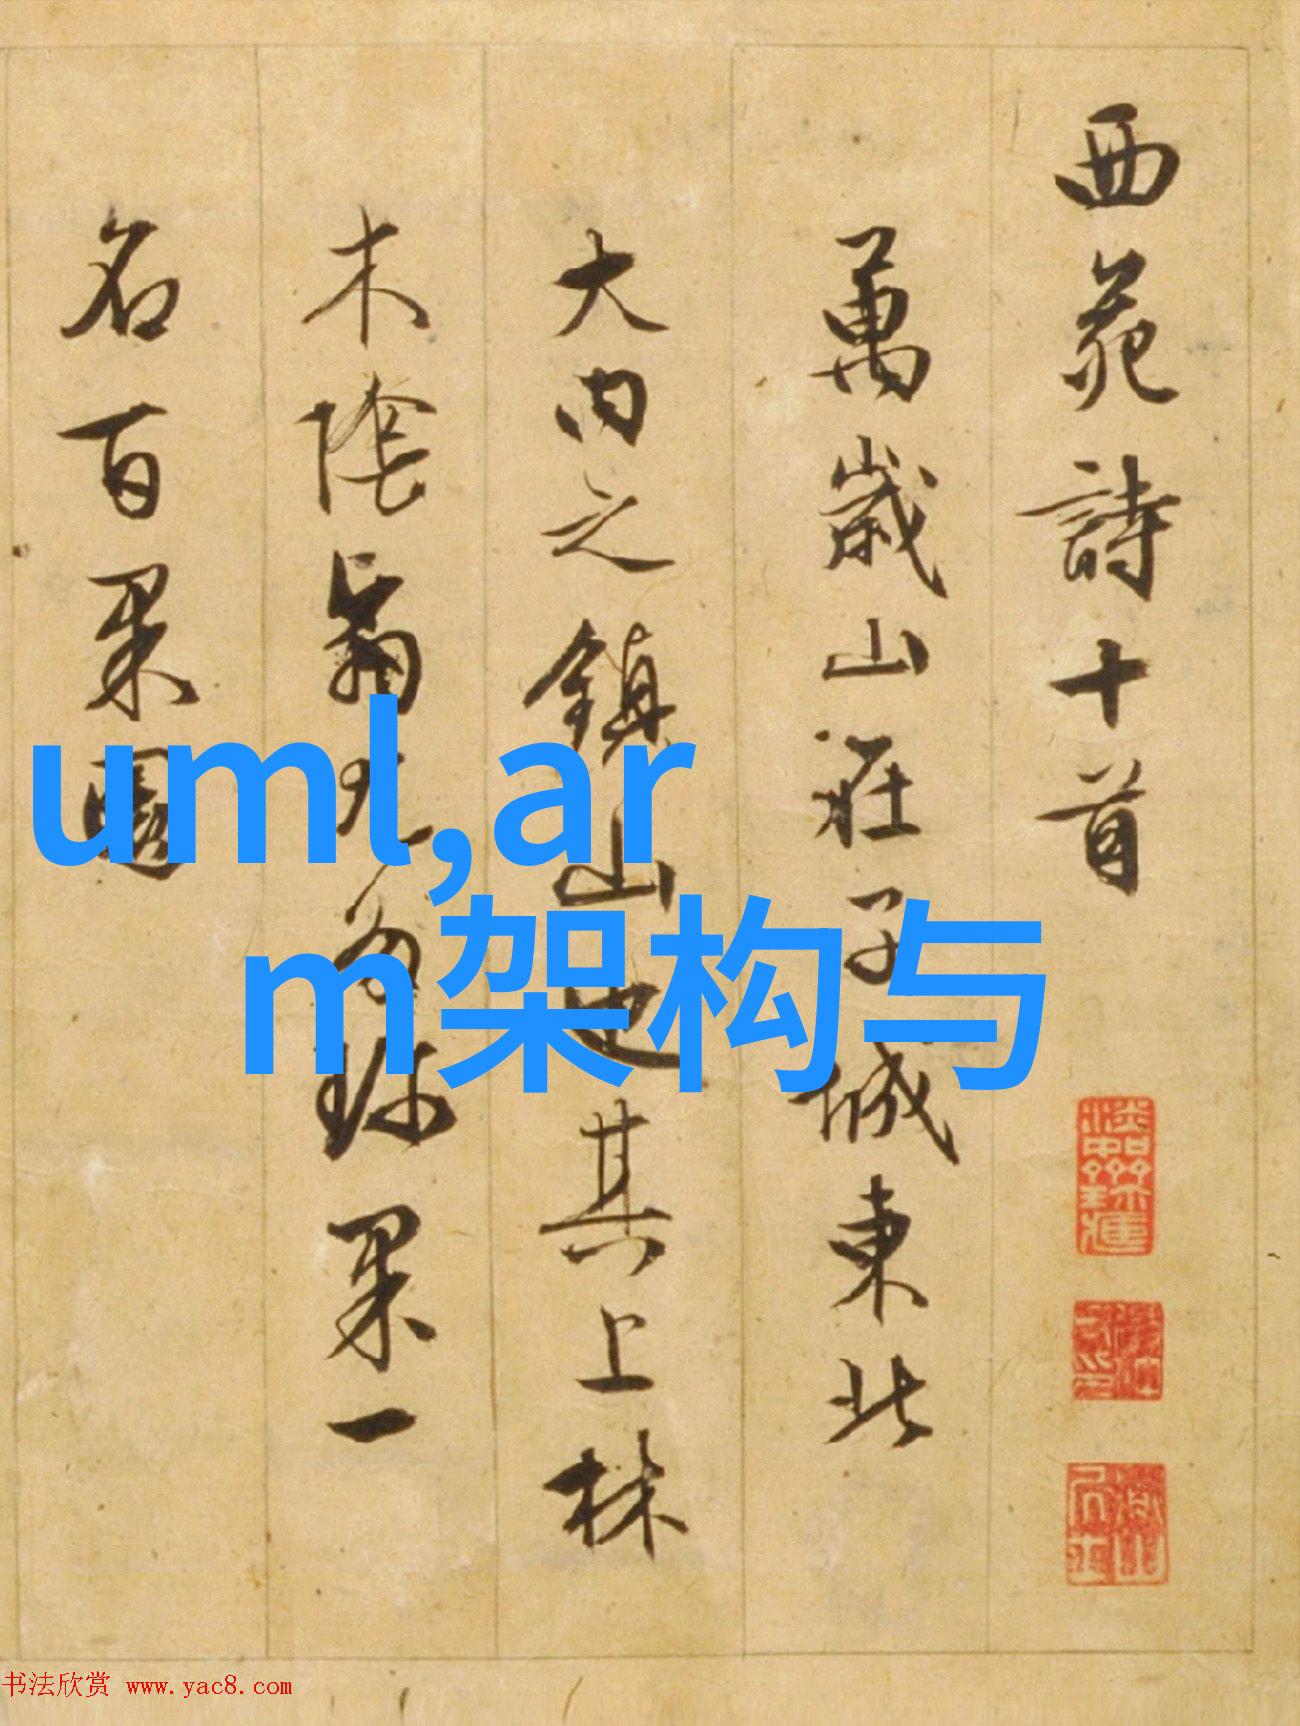 西苑詩十首
萬歲山在子城東北
大內之鎮山也其上林
木陰翳尤多珍果一
名百果園
uml,ar
m架构与
书法欣赏 www.yac8.com